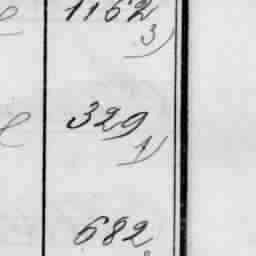 1162
3)
329
1)
682